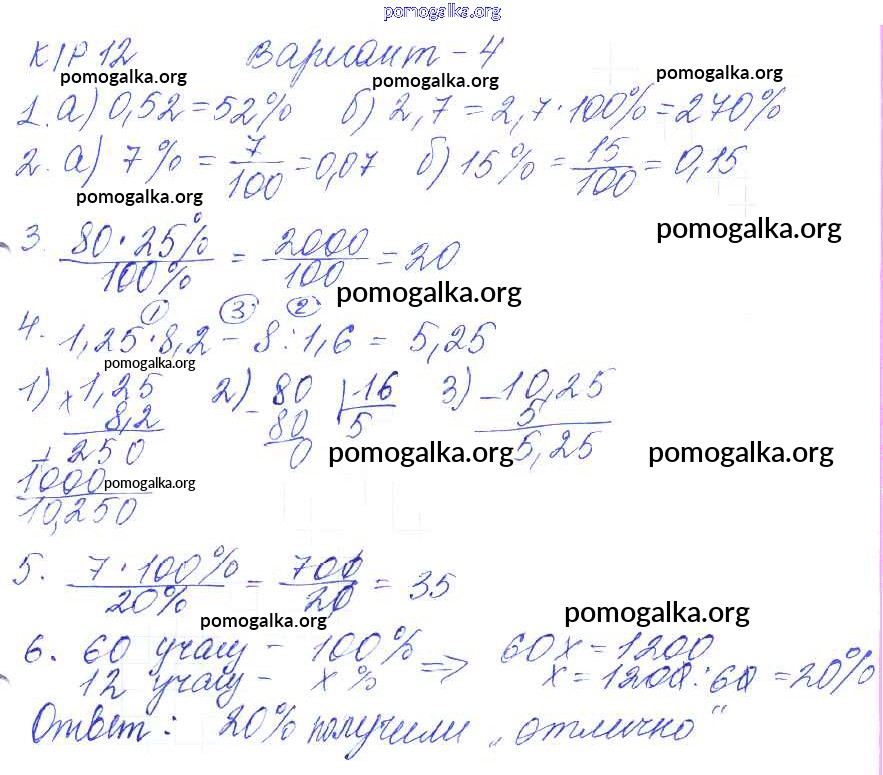 pomogalka.org
К/Р 12 Вариант - 4
pomogalka.org pomogalka.org pomogalka.org
1. а) 0,52 = 52% б) 2,7 = 2,7 · 100% = 270%
2. а) 7% = 7/100 = 0,07 б) 15% = 15/100 = 0,15
pomogalka.org
pomogalka.org
3. 80 · 25% / 100% = 2000/100 = 20
pomogalka.org
① ③ ②
4. 1,25 · 8,2 - 8 : 1,6 = 5,25
pomogalka.org
1) × 1,25 2) - 80 | 16 3) - 10,25
8,2 80 5 5
+ 250 0 5,25
pomogalka.org pomogalka.org
1000
pomogalka.org
10,250
5. 7 · 100% / 20% = 700/20 = 35
pomogalka.org pomogalka.org
6. 60 учащ - 100% => 60х = 1200
12 учащ - х % х = 1200 : 60 = 20%
Ответ: 20% получили „отлично"